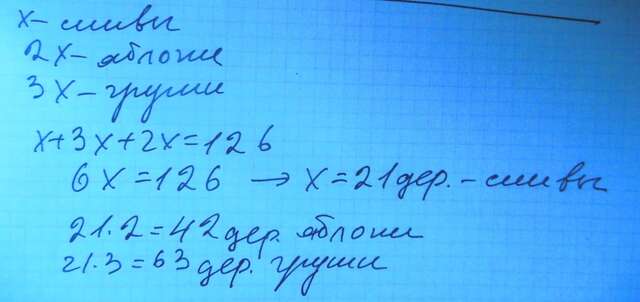 x- сливы
2x- яблони
3x- груши
x+3x+2x=126
6x=126 → x=21дер.-сливы
21.2=42дер. яблони
21.3=63дер. груши